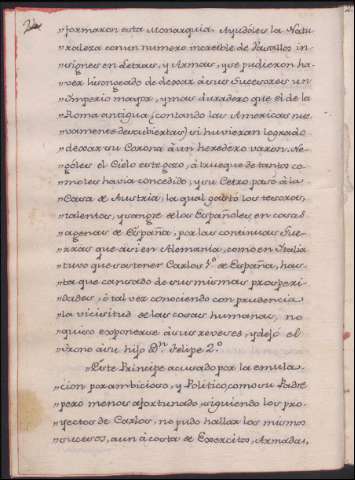 „formaron esta Monarquia. Ayudòles la Natu
„raleza con un numero increible de Vasallos in
„signes en Letras, y Armas, y se pudieron ha
„ver lisongeado de dexar à sus Sucesores un
„Imperio mayor, y mas duradero que el de la
„Roma antigua (contando las Americas nue
„vamente descubiertas) si huvieran logrado
„dexar su Corona à un heredero varon. Ne
„gòles el Cielo este gozo, à trueque de tantos co
„mo les havia concedido, y su Cetro pasò à la
„Casa de Austria, la qual gastò los tesoros,
„talentos, y sangre de los Españoles en cosas
„agenas de España, por las continuas Gue
„rras que asi en Alemania, como en Italia
„tuvo que sostener Carlos 1.º de España, has
„ta que cansado de sus mismas prosperi
„dades, ò tal vez conociendo con prudencia
„la vicisitud de las cosas humanas, no
„quiso exponerse à sus reveses, y dejò el
„trono à su hijo Dn. Felipe 2.º
„Este Principe acusado por la emula
„cion por ambicioso, y Politico, como su Padre
„pero menos afortunado, siguiendo los pro
„yectos de Carlos, no pudo hallar los mismos
„sucesos, aun à costa de Exercitos, Armadas,